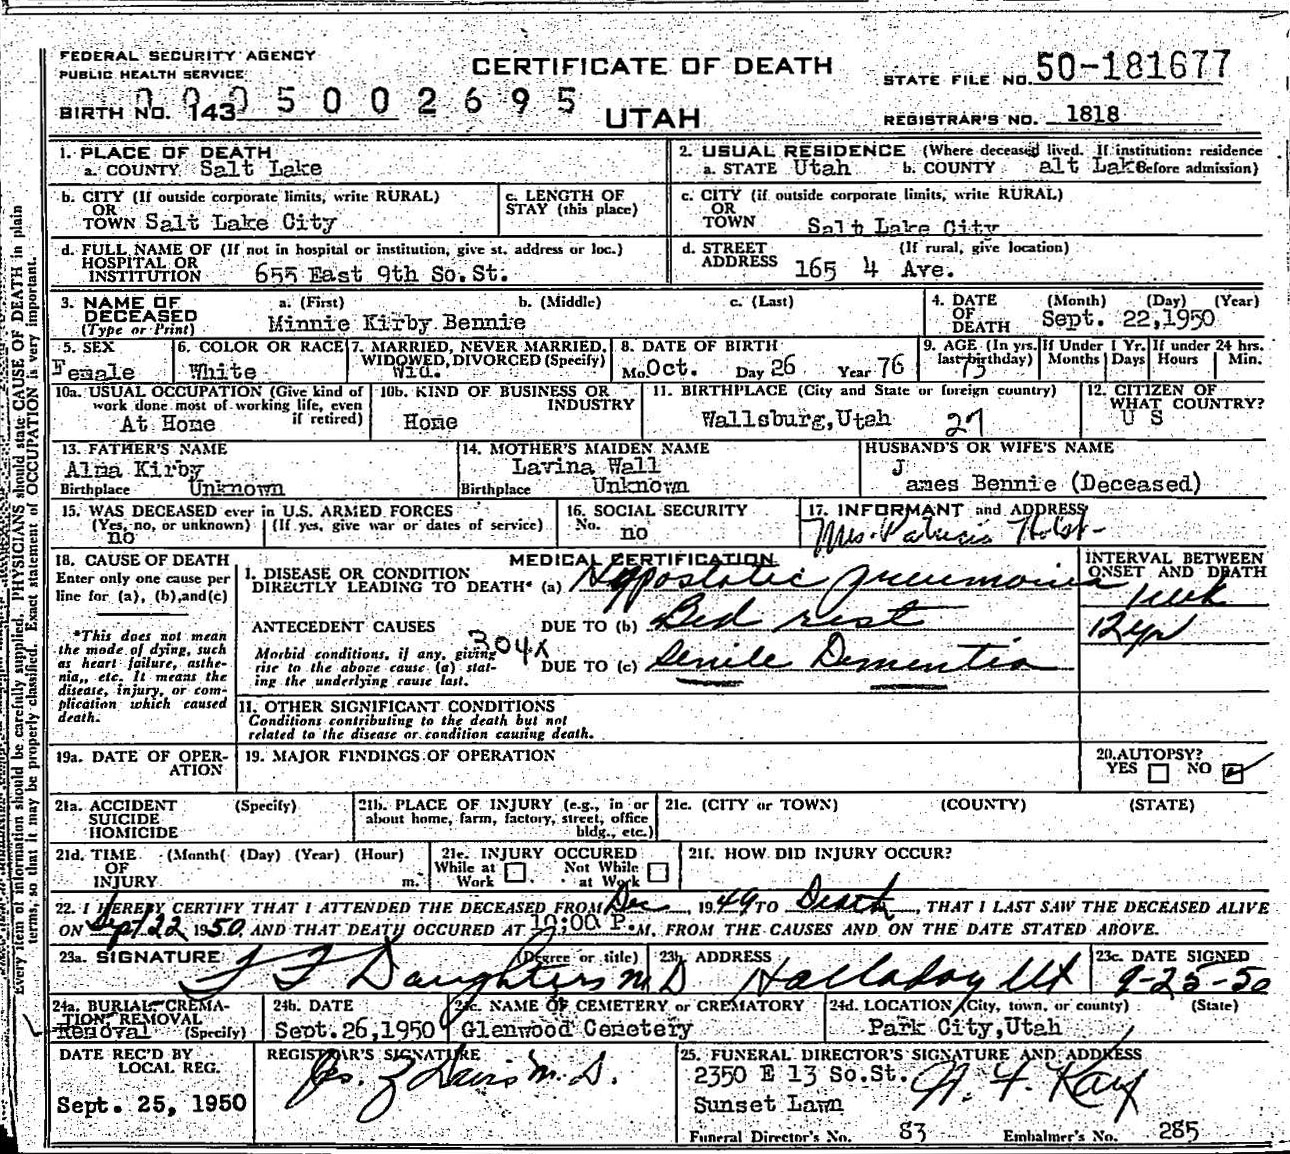 FEDERAL SECURITY AGENCY
PUBLIC HEALTH SERVICE
CERTIFICATE OF DEATH
STATE FILE NO. 50-181677
BIRTH NO. 143 0005002695
UTAH
REGISTRAR'S NO. 1818
1. PLACE OF DEATH
a. COUNTY Salt Lake
2. USUAL RESIDENCE (Where deceased lived. If institution: residence
a. STATE Utah b. COUNTY alt Lake before admission)
b. CITY (If outside corporate limits, write RURAL)
OR
TOWN Salt Lake City
c. LENGTH OF
STAY (this place)
c. CITY (if outside corporate limits, write RURAL)
OR
TOWN Salt Lake City
d. FULL NAME OF (If not in hospital or institution, give st. address or loc.)
HOSPITAL OR
INSTITUTION 655 East 9th So.St.
d. STREET (If rural, give location)
ADDRESS 165 4 Ave.
3. NAME OF a. (First) b. (Middle) c. (Last)
DECEASED
(Type or Print) Minnie Kirby Bennie
4. DATE (Month) (Day) (Year)
OF
DEATH Sept. 22,1950
5. SEX
Female
6. COLOR OR RACE
White
7. MARRIED, NEVER MARRIED,
WIDOWED, DIVORCED (Specify)
Wid.
8. DATE OF BIRTH
Mo. Oct. Day 26 Year 76
9. AGE (In yrs.
last birthday)
75
If Under 1 Yr.
Months Days
If under 24 hrs.
Hours Min.
10a. USUAL OCCUPATION (Give kind of
work done most of working life, even
if retired)
At Home
10b. KIND OF BUSINESS OR
INDUSTRY
Home
11. BIRTHPLACE (City and State or foreign country)
Wallsburg,Utah 27
12. CITIZEN OF
WHAT COUNTRY?
U S
13. FATHER'S NAME
Alma Kirby
Birthplace Unknown
14. MOTHER'S MAIDEN NAME
Lavina Wall
Birthplace Unknown
HUSBAND'S OR WIFE'S NAME
James Bennie (Deceased)
15. WAS DECEASED ever in U.S. ARMED FORCES
(Yes, no, or unknown) (If yes, give war or dates of service)
no
16. SOCIAL SECURITY
No. no
17. INFORMANT and ADDRESS
Mrs. Patricia Holst
18. CAUSE OF DEATH
Enter only one cause per
line for (a), (b), and (c)
*This does not mean
the mode of dying, such
as heart failure, asthe-
nia,, etc. It means the
disease, injury, or com-
plication which caused
death.
MEDICAL CERTIFICATION
I. DISEASE OR CONDITION
DIRECTLY LEADING TO DEATH* (a) Hypostatic pneumonia
ANTECEDENT CAUSES DUE TO (b) Bed rest
304X
Morbid conditions, if any, giving
rise to the above cause (a) stat-
ing the underlying cause last.
DUE TO (c) Senile Dementia
INTERVAL BETWEEN
ONSET AND DEATH
1 week
12 yr
II. OTHER SIGNIFICANT CONDITIONS
Conditions contributing to the death but not
related to the disease or condition causing death.
19a. DATE OF OPER-
ATION
19. MAJOR FINDINGS OF OPERATION
20. AUTOPSY?
YES NO
21a. ACCIDENT (Specify)
SUICIDE
HOMICIDE
21b. PLACE OF INJURY (e.g., in or
about home, farm, factory, street, office
bldg., etc.)
21c. (CITY or TOWN) (COUNTY) (STATE)
21d. TIME (Month( (Day) (Year) (Hour)
OF
INJURY m.
21e. INJURY OCCURED
While at Work Not While at Work
21f. HOW DID INJURY OCCUR?
22. I HEREBY CERTIFY THAT I ATTENDED THE DECEASED FROM Dec, 1949 TO Death, THAT I LAST SAW THE DECEASED ALIVE
ON Sept 22 1950 AND THAT DEATH OCCURED AT 10:00 P. M. FROM THE CAUSES AND ON THE DATE STATED ABOVE.
23a. SIGNATURE (Degree or title)
F F Daughters M D
23b. ADDRESS
Holladay Ut
23c. DATE SIGNED
9-25-50
24a. BURIAL, CREMA-
TION, REMOVAL
Removal (Specify)
24b. DATE
Sept.26,1950
24c. NAME OF CEMETERY or CREMATORY
Glenwood Cemetery
24d. LOCATION (City, town, or county) (State)
Park City,Utah
DATE REC'D BY
LOCAL REG.
Sept. 25, 1950
REGISTRAR'S SIGNATURE
Jos. Z Davis M. D.
25. FUNERAL DIRECTOR'S SIGNATURE AND ADDRESS
2350 E 13 So.St.
Sunset Lawn
Funeral Director's No. 83 Embalmer's No. 285
Every item of information should be carefully supplied. PHYSICIANS should state CAUSE OF DEATH in plain
terms, so that it may be properly classified. Exact statement of OCCUPATION is very important.